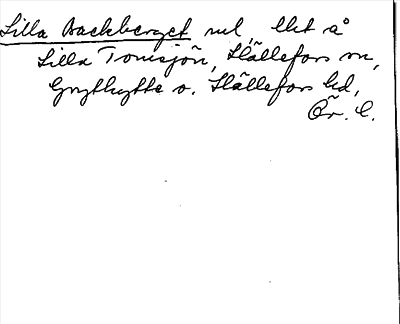 Lilla Backberget nul, llet å
Lilla Tomsjön, Hällefors sn,
Grythytte o. Hällefors hd,
Ör. l.